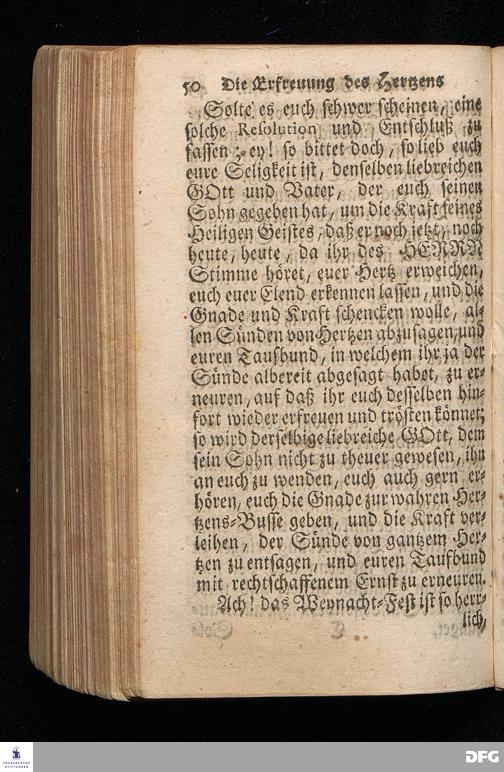 50 Die Erfreuung des Hertzens
Solte es euch schwer scheinen, eine
solche Resolution und Entschluß zu
fassen; ey! so bittet doch, so lieb euch
eure Seligkeit ist, denselben liebreichen
GOtt und Vater, der euch seinen
Sohn gegeben hat, um die Kraft seines
Heiligen Geistes, daß er noch jetzt, noch
heute, heute, da ihr des HERRN
Stimme höret, euer Hertz erweichen,
euch euer Elend erkennen lassen, und die
Gnade und Kraft schencken wolle, al-
len Sünden von Hertzen abzusagen, und
euren Taufbund, in welchem ihr ja der
Sünde albereit abgesagt habet, zu er-
neuren, auf daß ihr euch desselben hin-
fort wieder erfreuen und trösten könnet;
so wird derselbige liebreiche GOtt, dem
sein Sohn nicht zu theuer gewesen, ihn
an euch zu wenden, euch auch gern er-
hören, euch die Gnade zur wahren Her-
tzens-Busse geben, und die Kraft ver-
leihen, der Sünde von gantzem Her-
tzen zu entsagen, und euren Taufbund
mit rechtschaffenem Ernst zu erneuren.
Ach! das Weynacht-Fest ist so herr-
lich,
FRANCKESCHE
STIFTUNGEN
DFG